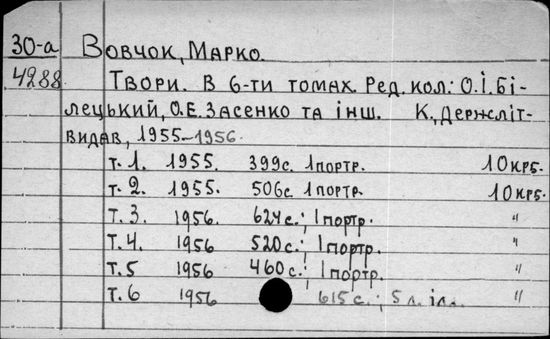 30-а Вовчок, Марко.
4288. Твори. В 6-ти томах. Ред. кол: О.І. Бі-
лецький, О.Е. Засенко та інш. К., Держліт-
видав, 1955-1956.
т. 1. 1955. 399с. 1портр. 10крб.
т. 2. 1955. 506с. 1портр. 10крб.
т. 3. 1956. 624с.; 1портр. "
т. 4. 1956 520с.; 1портр. "
т. 5 1956 460с.; 1портр. "
т. 6 1956 615с.; 5 л. іл. "